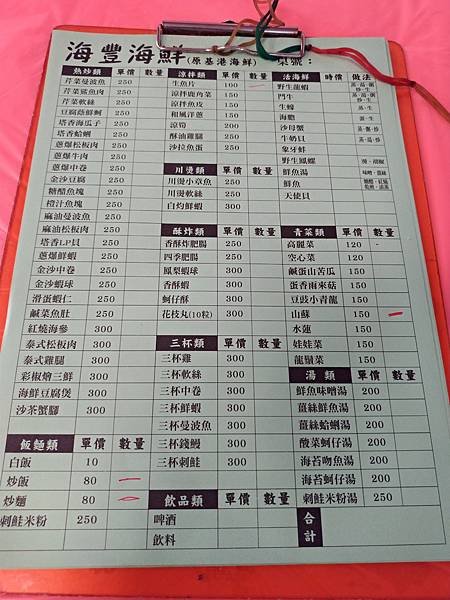 海豐海鮮(原基港海鮮) 桌號：
熱炒類 單價 數量
芹菜曼波魚 250
芹菜鯊魚肉 250
芹菜軟絲 250
豆腐蔭鮮蚵 250
塔香海瓜子 250
塔香蛤蜊 250
蔥爆松板肉 250
蔥爆牛肉 250
蔥爆中卷 250
金沙豆腐 250
糖醋魚塊 250
橙汁魚塊 250
麻油曼波魚 250
麻油松板肉 250
塔香LP貝 250
蔥爆鮮蝦 250
金沙中卷 250
金沙蝦球 250
滑蛋蝦仁 250
鹹菜魚肚 250
紅燒海參 300
泰式松板肉 300
泰式雞腿 300
彩椒燴三鮮 300
海鮮豆腐煲 300
沙茶蟹腳 300
飯麵類 單價 數量
白飯 10
炒飯 80
炒麵 80
刺鮭米粉 250
涼拌類 單價 數量
生魚片 100
涼拌鹿角菜 150
涼拌魚皮 150
和風洋蔥 150
涼筍 200
酥油雞腳 250
沙拉魚蛋 250
川燙類 單價 數量
川燙小章魚 250
川燙軟絲 250
白灼鮮蝦 300
酥炸類 單價 數量
香酥炸肥腸 250
四季肥腸 250
鳳梨蝦球 300
香酥蝦 300
蚵仔酥 300
花枝丸(10粒) 300
三杯類 單價 數量
三杯雞 300
三杯軟絲 300
三杯中卷 300
三杯鮮蝦 300
三杯曼波魚 300
三杯錢鰻 300
三杯刺鮭 300
飲品類 單價 數量
啤酒
飲料
活海鮮 時價 做法
野生龍蝦
鬥牛
生蠔
海膽
沙母蟹
牛奶貝
象牙蚌
野生鳳螺
鮮魚湯
鮮魚
天使貝
青菜類 單價 數量
高麗菜 120
空心菜 120
鹹蛋山苦瓜 150
蛋香雨來菇 150
豆豉小青龍 150
山蘇 150
水蓮 150
娃娃菜 150
龍鬚菜 150
湯類 單價 數量
鮮魚味噌湯 200
薑絲鮮魚湯 200
薑絲蛤蜊湯 200
酸菜蚵仔湯 200
海苔吻魚湯 200
海苔蚵仔湯 200
刺鮭米粉湯 250
合計